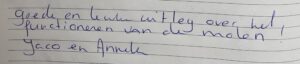 goede en leuke uitleg over het
functioneren van de molen
Jaco en Annelie